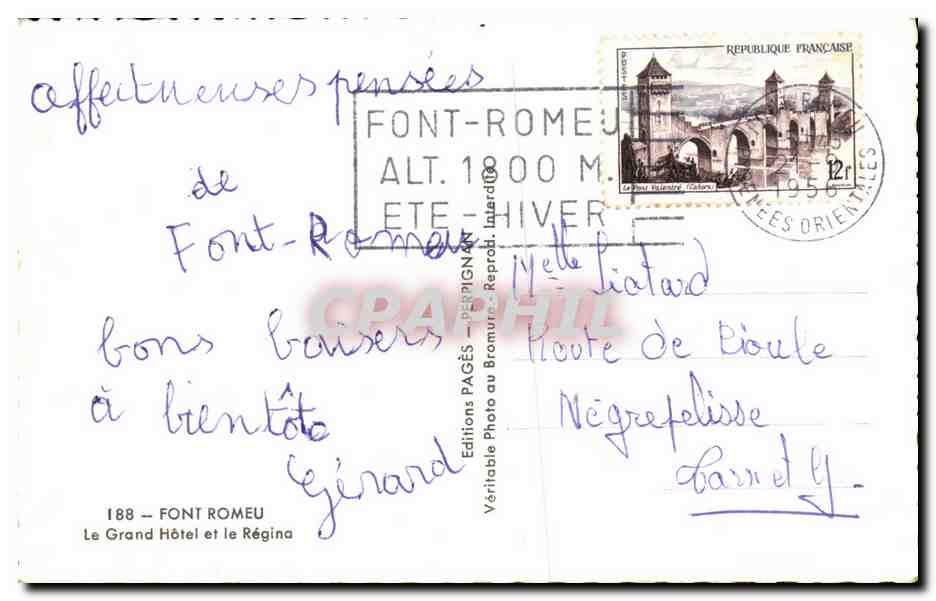 affectueuses pensées
de
Font-Romeu
bons baisers
à bientôt
Gérard
188 — FONT ROMEU
Le Grand Hôtel et le Régina
Editions PAGÈS — PERPIGNAN
Véritable Photo au Bromure - Reprod. Interdite
FONT-ROMEU
ALT. 1800 M.
ETE - HIVER
REPUBLIQUE FRANÇAISE
POSTES
Le Pont Valentré (Cahors)
12F
1956
ORIENTALES
Melle Liatard
Route de Bioule
Négrepelisse
Tarn et G.
CPAPHIL